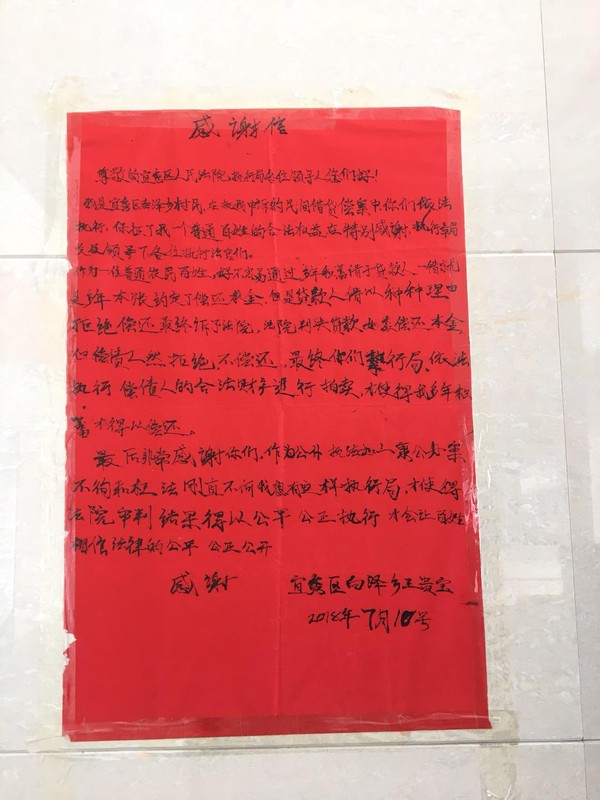 感谢信
尊敬的宜秀区人民法院执行局各位领导人你们好！
我是宜秀区白泽乡村民，在执我申诉的民间借贷偿案中你们依法
执行，保证了我一个普通百姓的合法权益在特别感谢，执行章局
及各位执行法官们。
作为一位普通农民百姓，好不容易通过多年积蓄借于贷款人，一借就
是多年本来约定了偿还本金，但是贷款人借以种种理由
拒绝偿还最终诉了法院，法院判决贷款女者偿还本金
但偿债人然拒绝不偿还，最终你们执行局，依法
执行偿债人的合法财产进行拍卖，才使得我多年积
蓄才得以偿还。
最后非常感谢你们，作为公开执法如山秉公办案
不徇和权法刚直不阿我想有执行局，才使得
法院审判结果得以公平公正执行才会让百姓
相信法律的公平公正公开
感谢 宜秀区白泽乡王贵宝
2018年7月10号